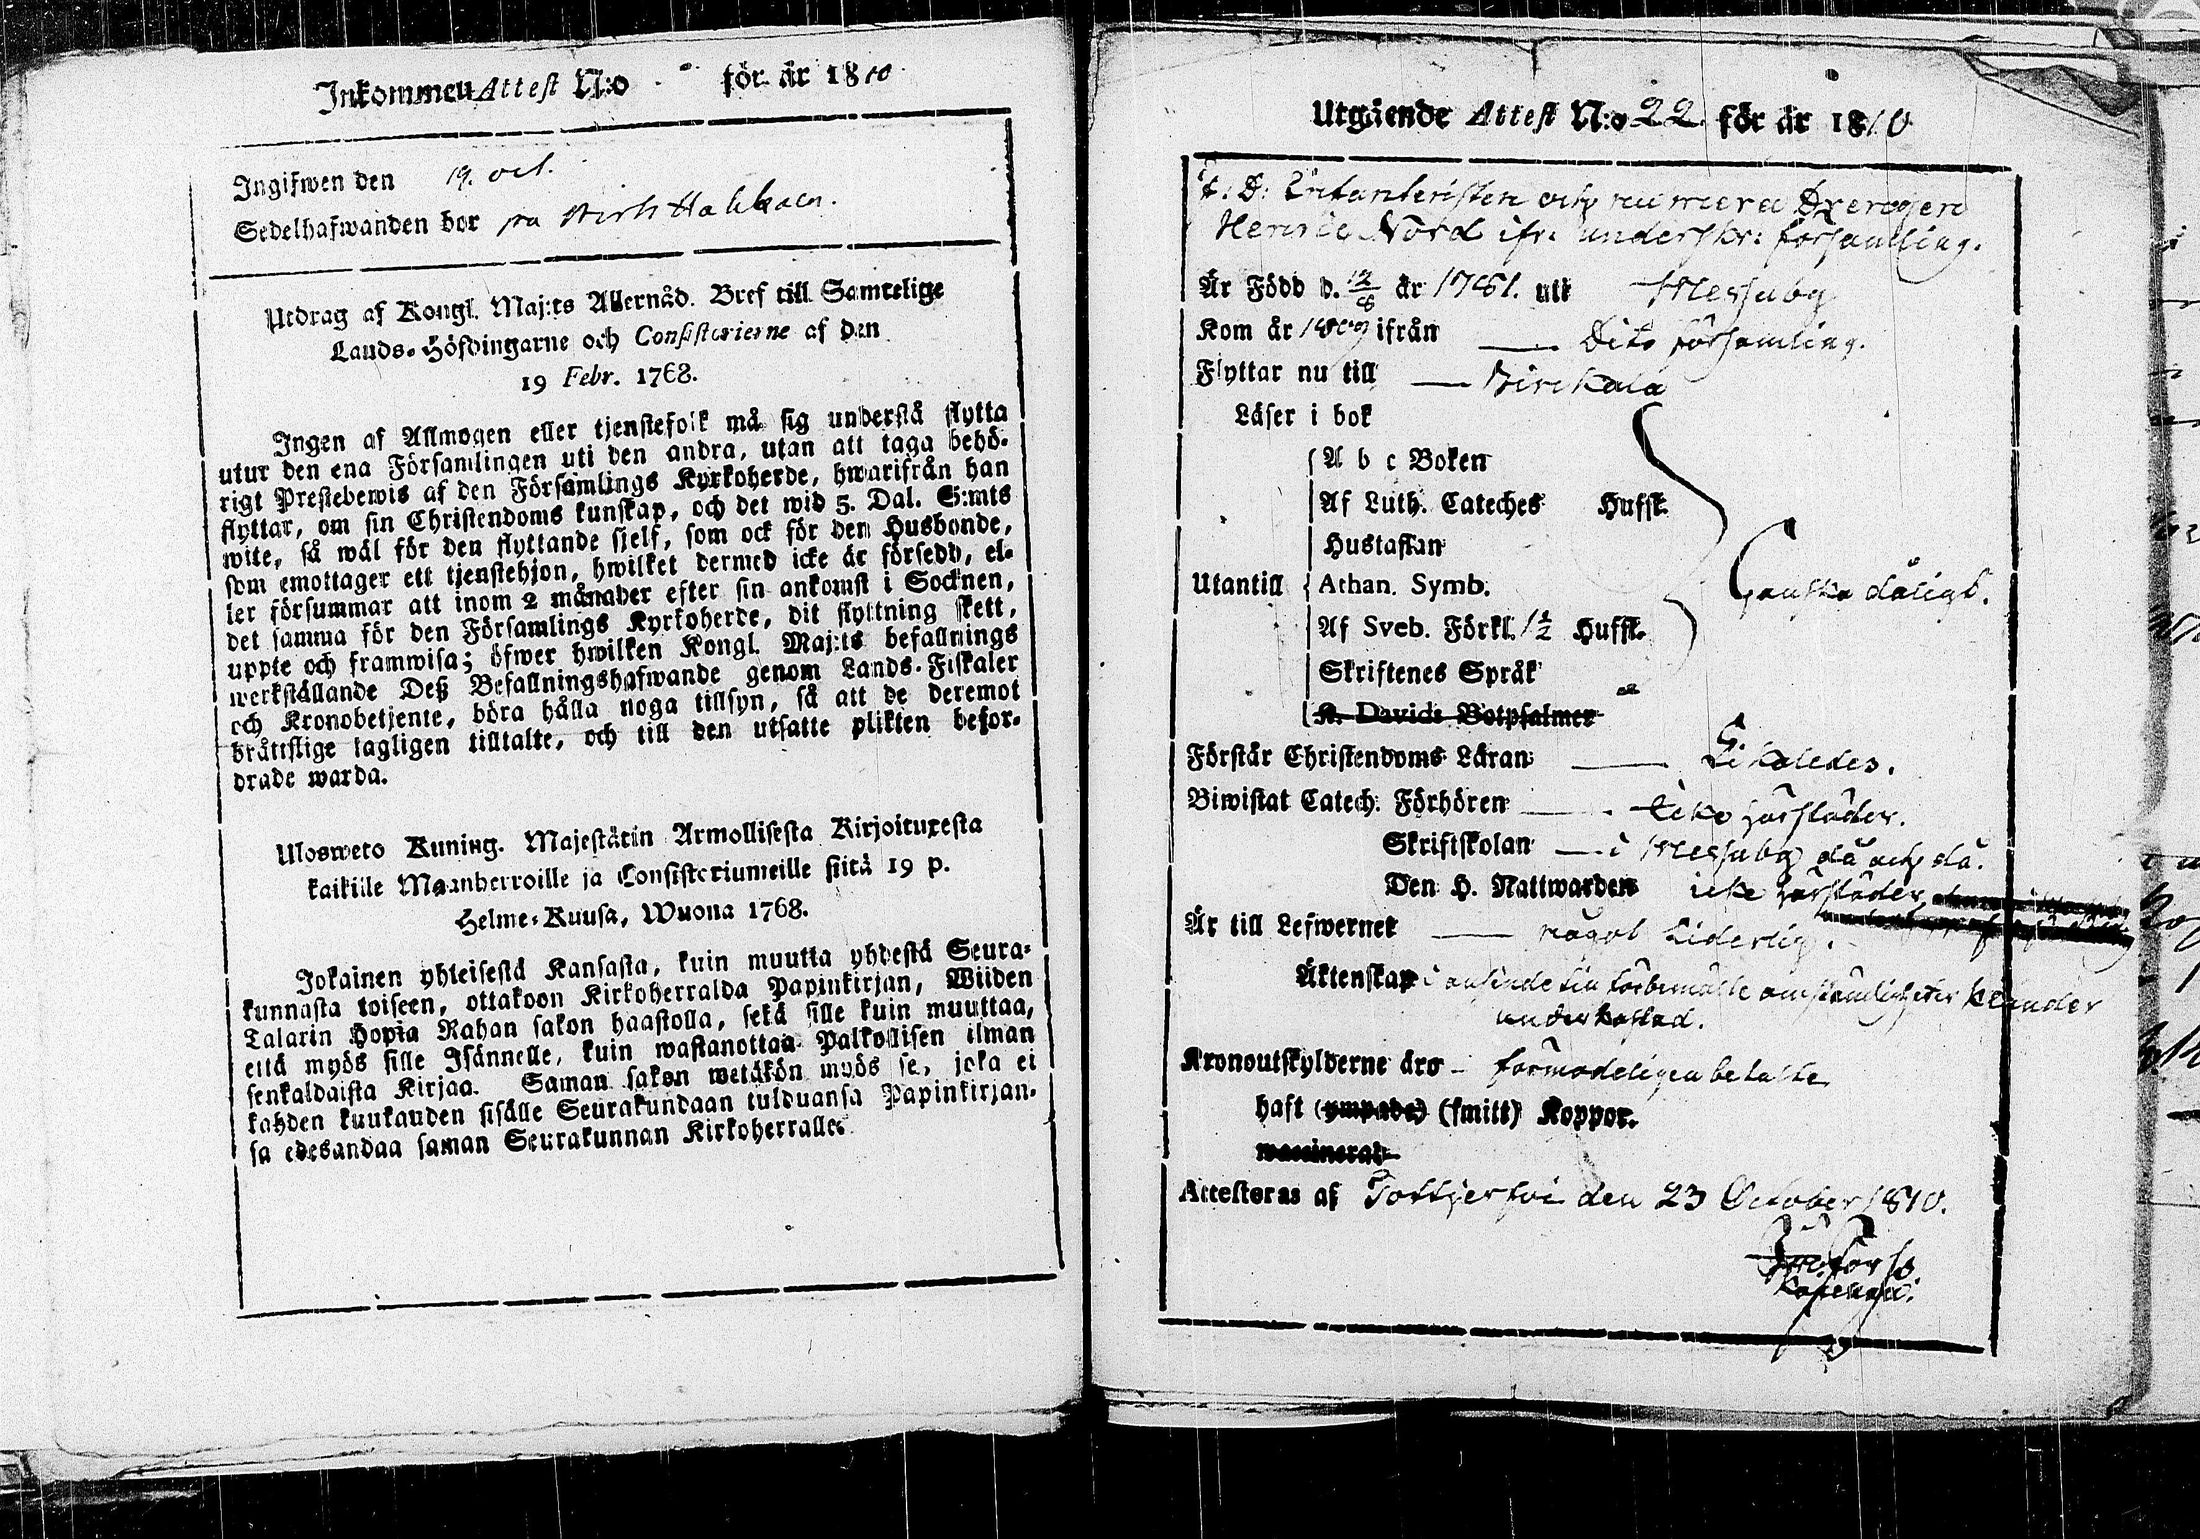 Inkommen Attest N:o för år 1810
Ingifwen den 19. oct.
Sedelhafwanden bor på
Utdrag af Kongl. Maj:ts Allernåd. Bref till Samtelige
Lands-Höfdingarne och Consistorierne af den
19 Febr. 1768.
Ingen af Allmogen eller tjenstefolk må sig understå flytta
utur den ena Församlingen uti den andra, utan att taga behö-
rigt Prestebewis af den Församlings Kyrkoherde, hwarifrån han
flyttar, om sin Christendoms kunskap, och det wid 5. Dal. S:mts
wite, så wäl för den flyttande sjelf, som ock för den Husbonde,
som emottager ett tjenstehjon, hwilket dermed icke är försedt, el-
ler försummar att inom 2 månader efter sin ankomst i Socknen,
det samma för den Församlings Kyrkoherde, dit flyttning skett,
uppte och framwisa; öfwer hwilken Kongl. Maj:ts befallnings
werkställande Deß Befallningshafwande genom Lands-Fiskaler
och Kronobetjente, böra hålla noga tillsyn, så att de deremot
bråttslige lagligen tilltalte, och till den utsatte plikten befor-
drade warda.
Ulosweto Kuning. Majestätin Armollisesta Kirjoituxesta
kaikille Maanherroille ja Consistoriumeille siitä 19 p.
Helme-Kuusa, Wuona 1768.
Jokainen yhteisestä Kansasta, kuin muutta yhdestä Seura-
kunnasta toiseen, ottakoon Kirkoherralda Papinkirjan, Wiiden
Talarin Hopia Rahan sakon haastolla, sekä sille kuin muuttaa,
että myös sille Isännelle, kuin wastanottaa Palkollisen ilman
senkaldaista Kirjaa. Saman sakon wetäkön myös se, joka ei
kahden kuukauden sisälle Seurakundaan tulduansa Papinkirjan-
sa edesandaa saman Seurakunnan Kirkoherralle.
Utgående Attest N:o 22 för år 1810
f. D. Infanteristen och numera Drengen
Henric Nord ifr: underskr: församling.
Är Född d. 12/8 år 1781. uti Messuby
Kom år 1809 ifrån — Dito församling.
Flyttar nu till — Birckala
Läser i bok
A b c Boken
Af Luth. Cateches Hufst.
Hustaflan
Utantill Athan. Symb. Ganska dåligt.
Af Sveb. Förkl. 1 1/2 Hufst.
Skriftenes Språk
K. Davids Botpsalmer
Förstår Christendoms Läran — Likaledes.
Biwistat Catech. Förhören — Icke härstädes.
Skriftskolan — i Messuby då och då.
Den H. Nattwarden icke härstädes
Är till Lefwernet — något liderlig.
Äktenskap i anseende till förbemälte omständigheter klander
underkastad.
Kronoutskylderne äro - förmodeligen betalte
haft (ympade) (smitt) Koppor.
waccinerad
Attesteras af Tottijerfvi den 23 October 1810.